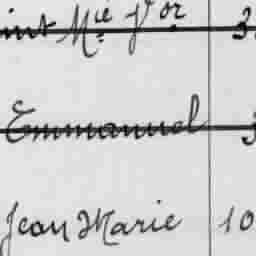 int Mie Vor 3
Emmanuel 3
Jean Marie 10